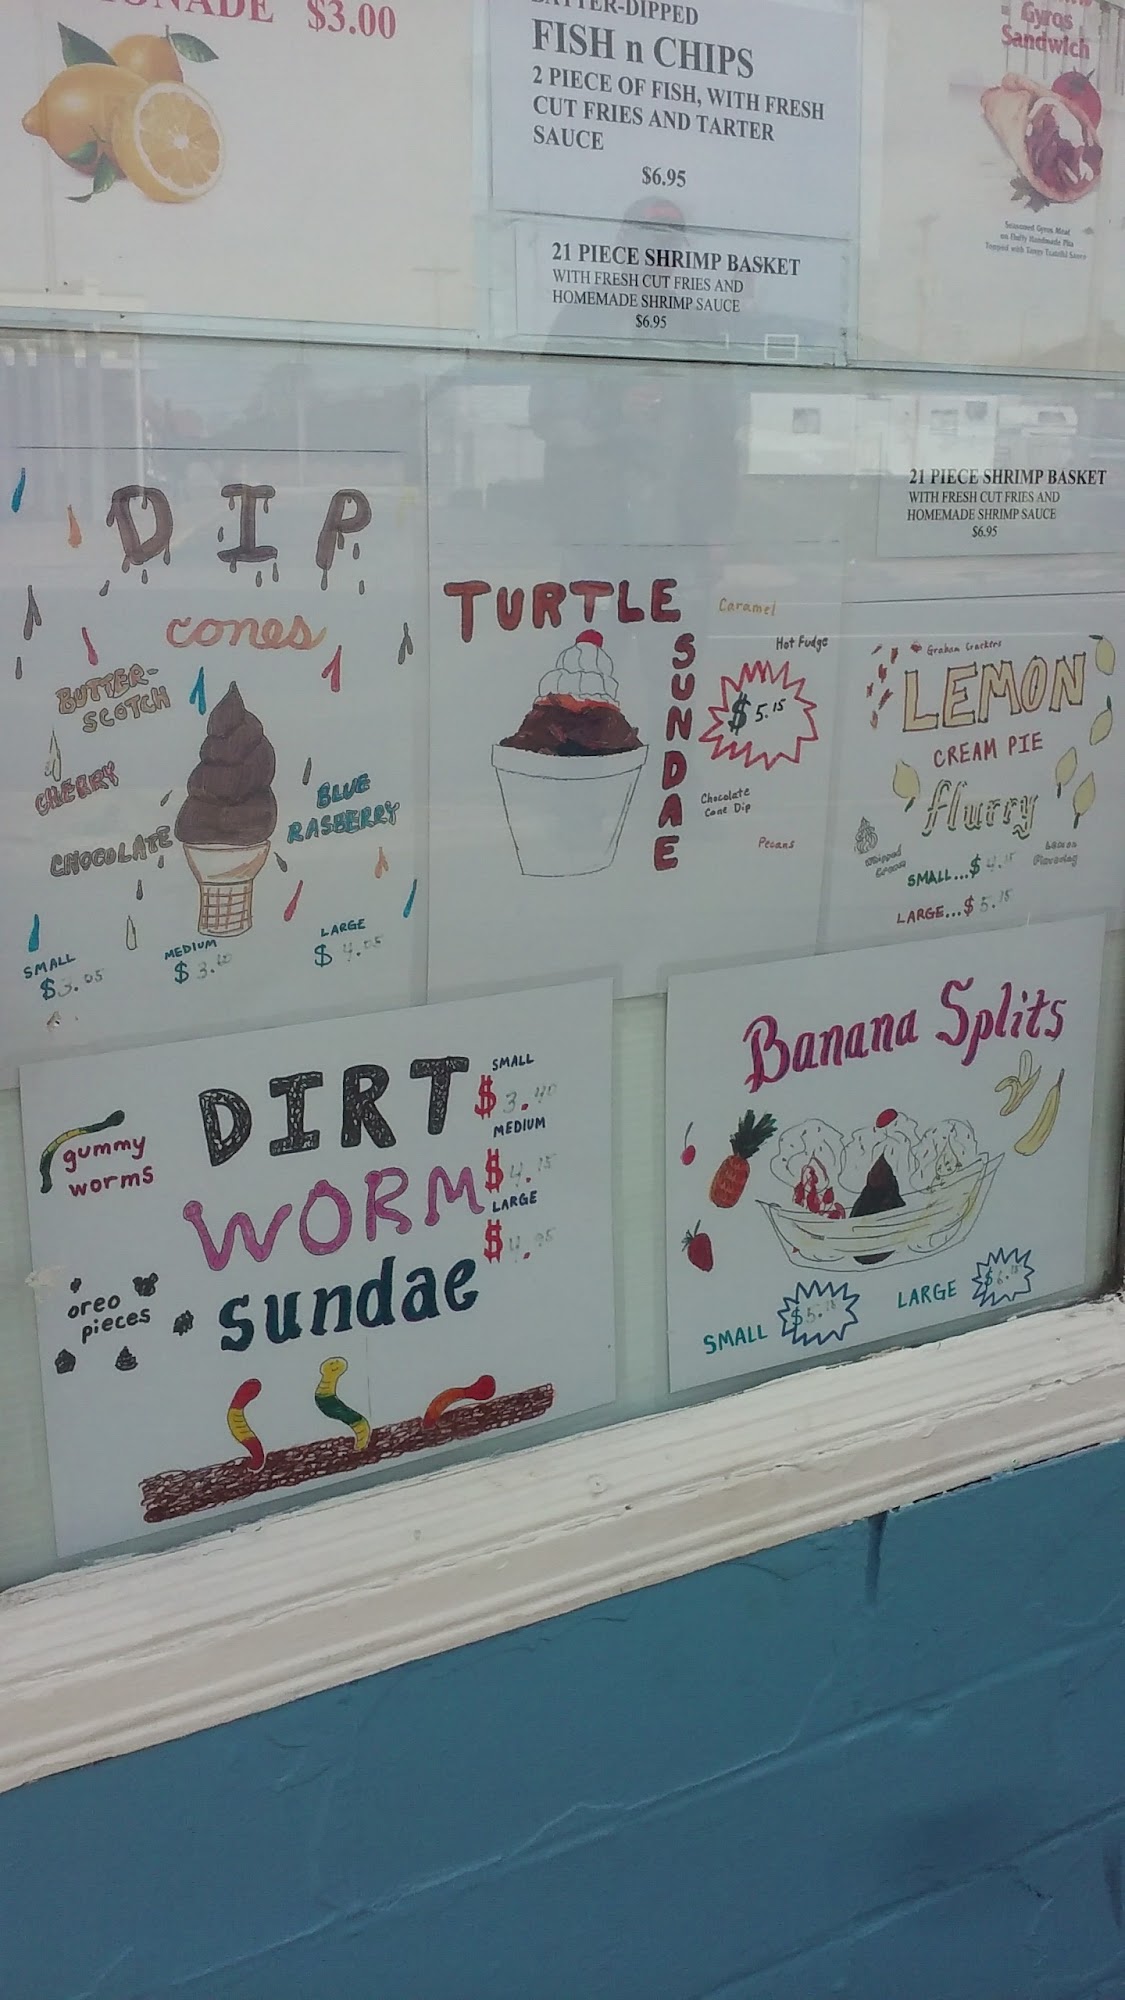 $3.00
BATTER-DIPPED
FISH n CHIPS
2 PIECE OF FISH, WITH FRESH
CUT FRIES AND TARTER
SAUCE
$6.95
21 PIECE SHRIMP BASKET
WITH FRESH CUT FRIES AND
HOMEMADE SHRIMP SAUCE
$6.95
Gyros
Sandwich
Seasoned Gyros Meat
on Fluffy Handmade Pita
Topped with Tangy Tzatziki Sauce
21 PIECE SHRIMP BASKET
WITH FRESH CUT FRIES AND
HOMEMADE SHRIMP SAUCE
$6.95
DIP
cones
BUTTER-
SCOTCH
CHERRY
CHOCOLATE
BLUE
RASBERRY
SMALL
$3.05
MEDIUM
$3.60
LARGE
$4.05
TURTLE
SUNDAE
Caramel
Hot Fudge
$5.15
Chocolate
Cone Dip
Pecans
Graham Crackers
LEMON
CREAM PIE
flurry
Whipped
Cream
Lemon
Flavoring
SMALL...$4.15
LARGE...$5.15
DIRT
WORM
sundae
gummy
worms
oreo
pieces
SMALL
$3.40
MEDIUM
$4.15
LARGE
$4.95
Banana Splits
SMALL $5.15
LARGE $6.15